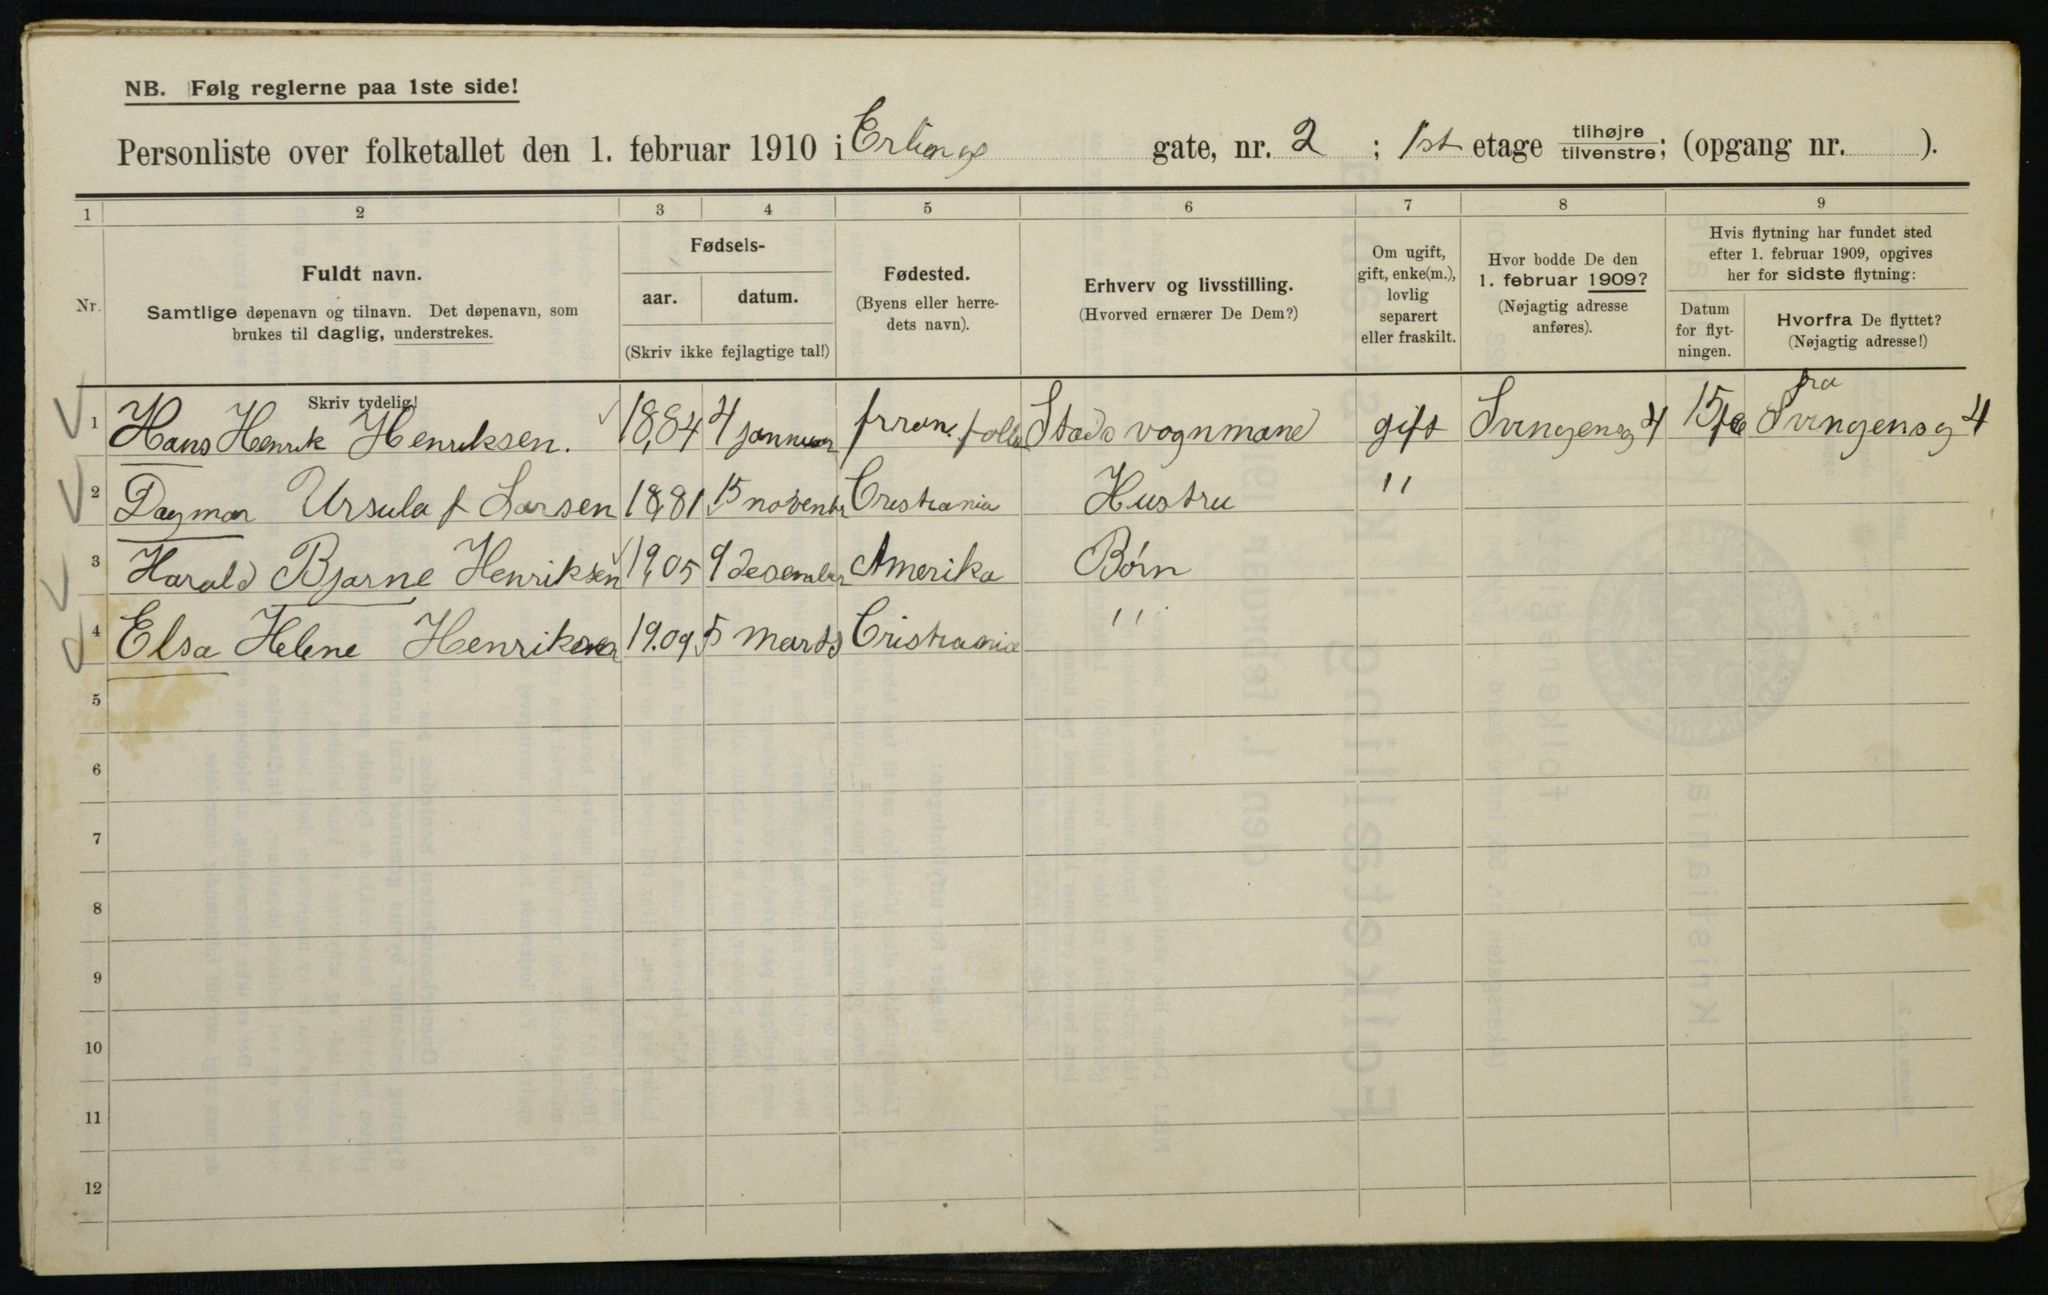 NB. Følg reglerne paa 1ste side!
Personliste over folketallet den 1. februar 1910 i Erlings gate, nr. 2 ; 1st etage tilhøjre/tilvenstre; (opgang nr. ).
1 2 3 4 5 6 7 8 9
Nr.
Fuldt navn.
Samtlige døpenavn og tilnavn. Det døpenavn, som
brukes til daglig, understrekes.
Skriv tydelig!
Fødsels-
aar. datum.
(Skriv ikke fejlagtige tal!)
Fødested.
(Byens eller herre-
dets navn).
Erhverv og livsstilling.
(Hvorved ernærer De Dem?)
Om ugift,
gift, enke(m.),
lovlig
separert
eller fraskilt.
Hvor bodde De den
1. februar 1909?
(Nøjagtig adresse
anføres).
Hvis flytning har fundet sted
efter 1. februar 1909, opgives
her for sidste flytning:
Datum
for flyt-
ningen.
Hvorfra De flyttet?
(Nøjagtig adresse!)
1 Hans Henrik Henriksen. 18,84 4 januar Stads vognmand gift Svingensg 4 15 fra Svingensg 4
2 Dagmar Ursula f Larsen 18,81 15 november Cristiania Hustru "
3 Harald Bjarne Henriksen 19,05 9 desember Amerika Børn
4 Elsa Helene Henriksen 19.09 5 marts Cristiania "
5
6
7
8
9
10
11
12